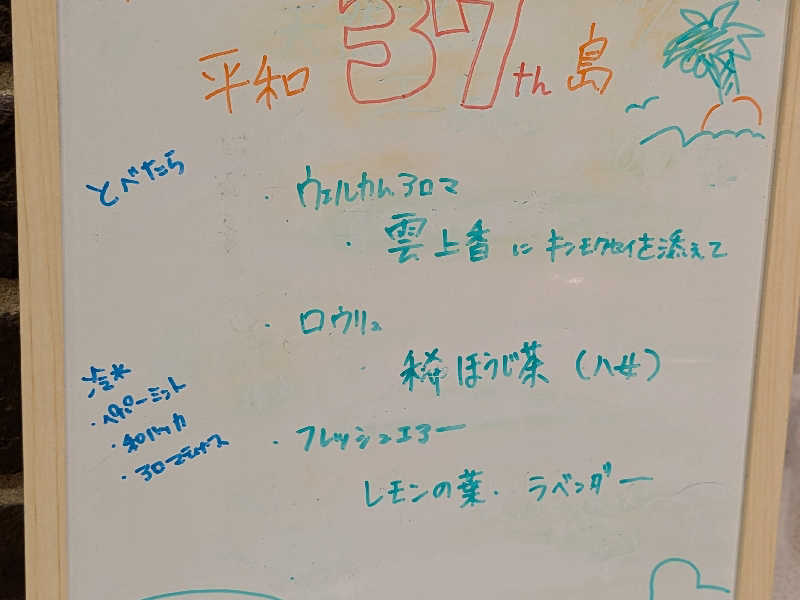 平和 37th 島
とべたら
・ウェルカムアロマ
・雲上香にキンモクセイを添えて
・ロウリュ
稀ほうじ茶(八女)
・ペパーミント
・和ハッカ
・アロマ
・フレッシュエアー
レモンの葉・ラベンダー